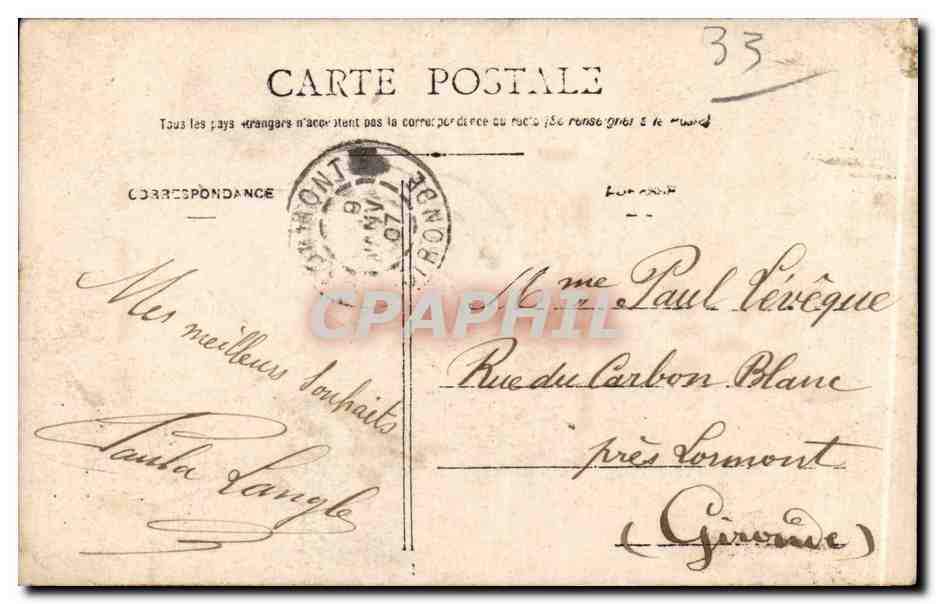 33
CARTE POSTALE
Tous les pays étrangers n'acceptent pas la correspondance au recto (Se renseigner à la Poste)
CORRESPONDANCE
ADRESSE
LORMONT GIRONDE
6 JANV 07
CPAPHIL
Mes meilleurs Souhaits
Paula Langle
Mme Paul Lévêque
Rue du Carbon Blanc
près Lormont
(Gironde)